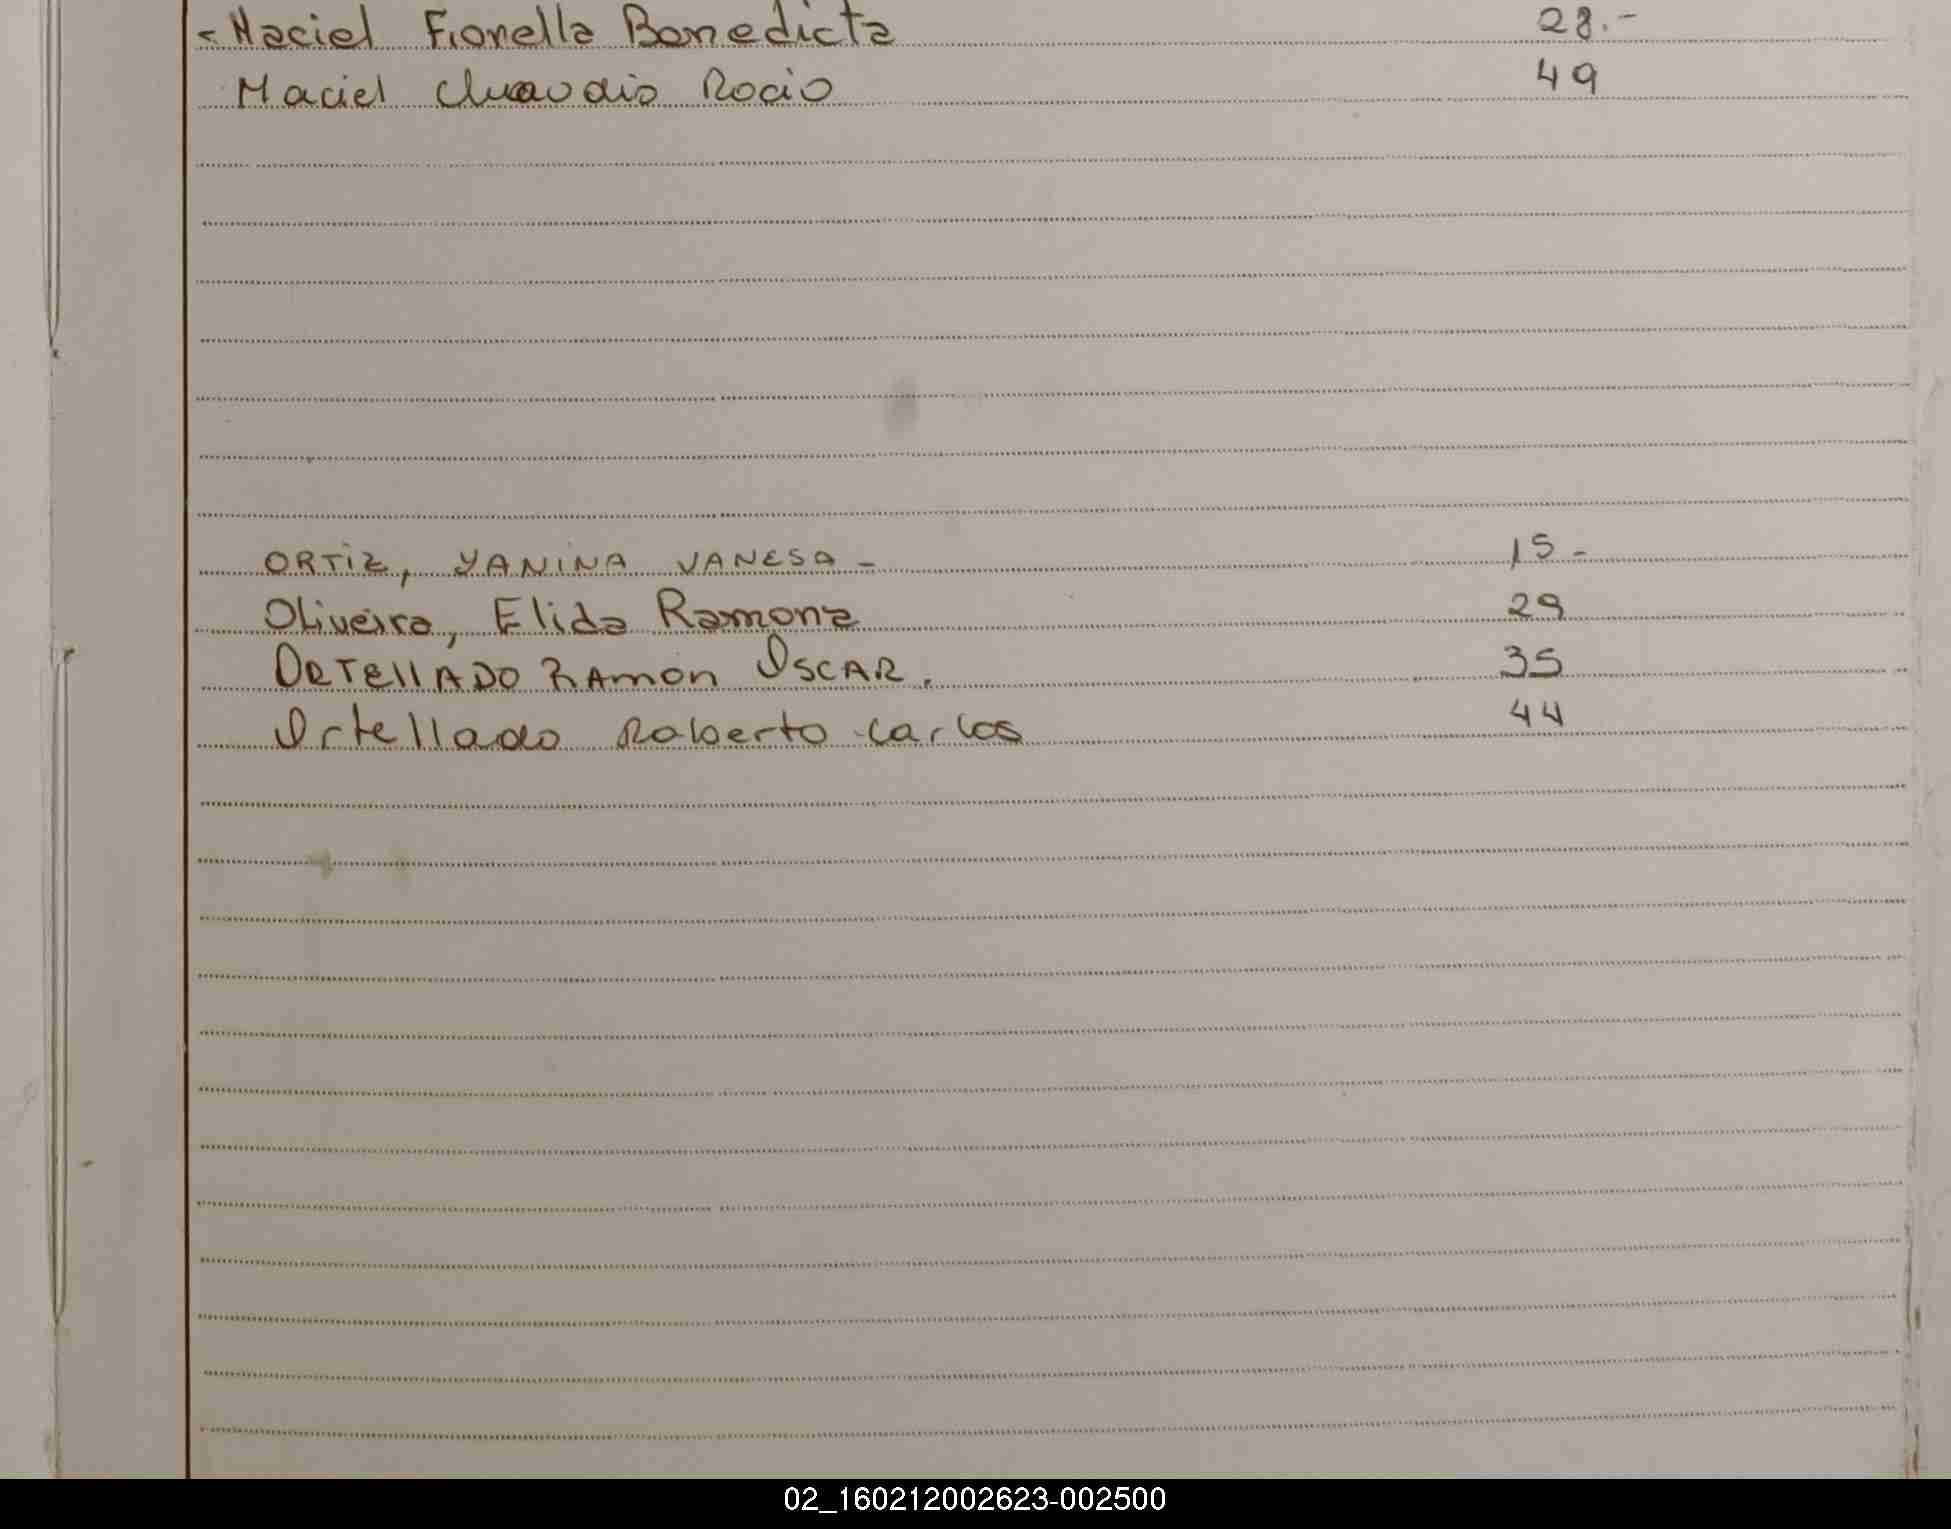 - Maciel Fiorella Benedicta 28.-
Maciel Claudia Rocio 49
ORTIZ, YANINA VANESA - 15 -
Oliveira, Elida Ramona 29
ORTELLADO RAMON OSCAR. 35
Ortellado Roberto Carlos 44
02_160212002623-002500